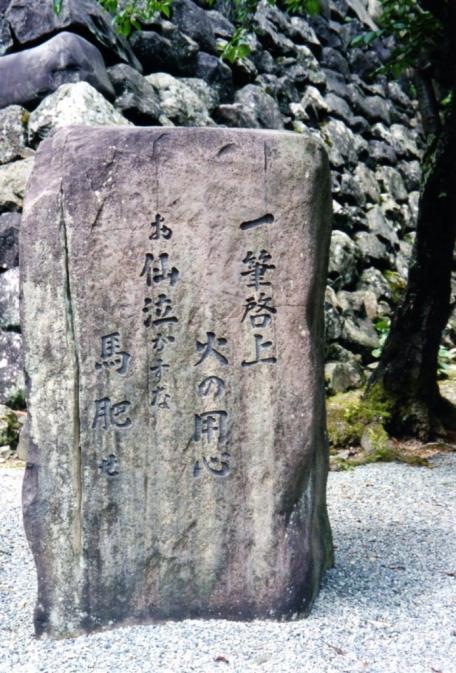 一筆啓上
火の用心
お仙泣かすな
馬肥せ